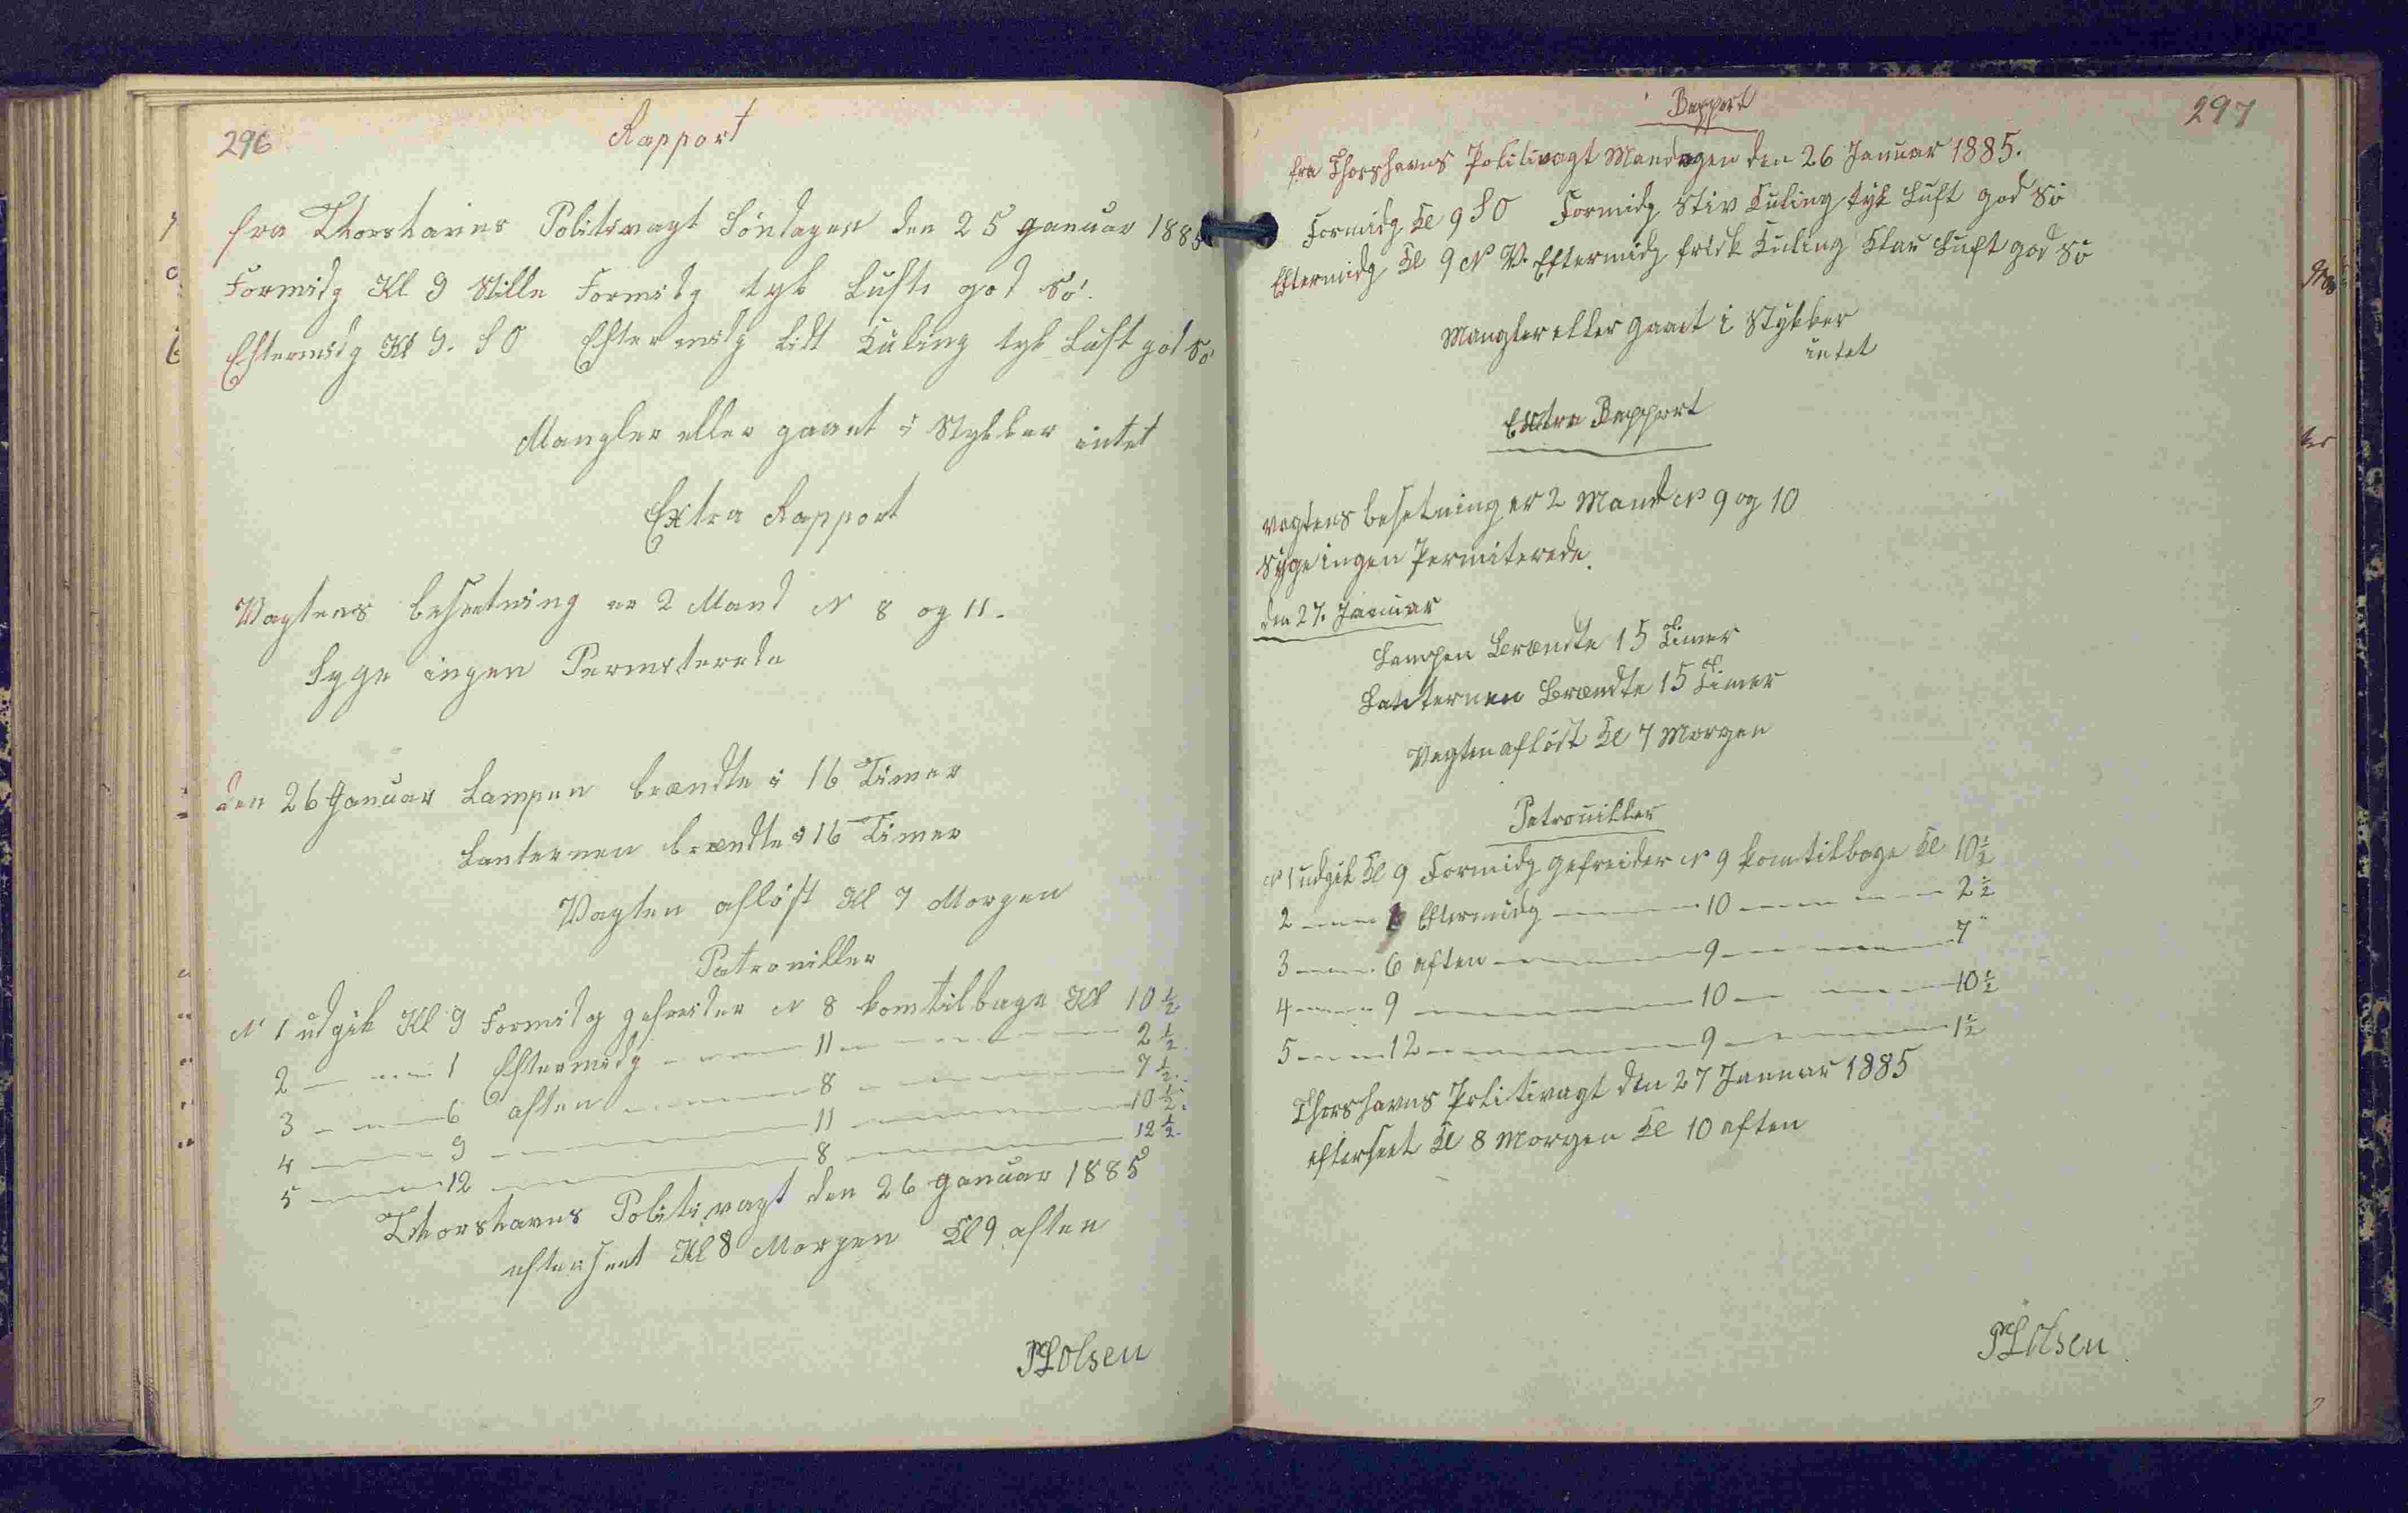 296
Rapport
fra Thorshavns Politivagt Söndagen den 25 Januar 1885
Formidg Kl 9 Stille Formidg tyk Luft god Sö.
Eftermidg Kl 9. S O Eftermidg lidt Kuling tyk Luft god Sö
Mangler eller gaaet i Stykker intet
Extra Rapport
Vagtens besætning er 2 Mand N 8 og 11.
Syge ingen Permiterede
den 26 Januar Lampen brændte i 16 Timer
Lanternen brændte i 16 Timer
Vagten aflöst Kl 7 Morgen
Patrouiller
N 1 udgik Kl 9 Formidg gefreider N 8 kom tilbage Kl 10 1/2
2 — — 1 Eftermidg — — 11 — — 2 1/2
3 — — 6 aften — — 8 — — 7 1/2
4 — — 9 — — 11 — — 10 1/2
5 — — 12 — — 8 — — 12 1/2
Thorshavns Politivagt den 26 Januar 1885
efterseet Kl 8 Morgen Kl 9 aften
297
Rapport
fra Thorshavns Politivagt Mandagen den 26 Januar 1885.
Formidg Kl 9 S O Formidg Stiv Kuling tyk Luft god Sö
Eftermidg Kl 9 N V. Eftermidg frisk Kuling Klar Luft god Sö
Mangler eller gaaet i Stykker
intet
Extra Rapport
vagtens besetning er 2 Mand N 9 og 10
Syge ingen Permiterede.
den 27. Januar
Lampen Brændte 15 Timer
Lanternen Brændte 15 Timer
Vagten aflöst Kl 7 Morgen
Patrouiller
N 1 udgik Kl 9 Formidg gefreider N 9 kom tilbage Kl 10 1/2
2 — — 1 Eftermidg — — 10 — — 2 1/2
3 — — 6 aften — — 9 — — 7 "
4 — — 9 — — 10 — — 10 1/2
5 — — 12 — — 9 — — 1 1/2
Thorshavns Politivagt den 27 Januar 1885
efterseet Kl 8 Morgen Kl 10 aften